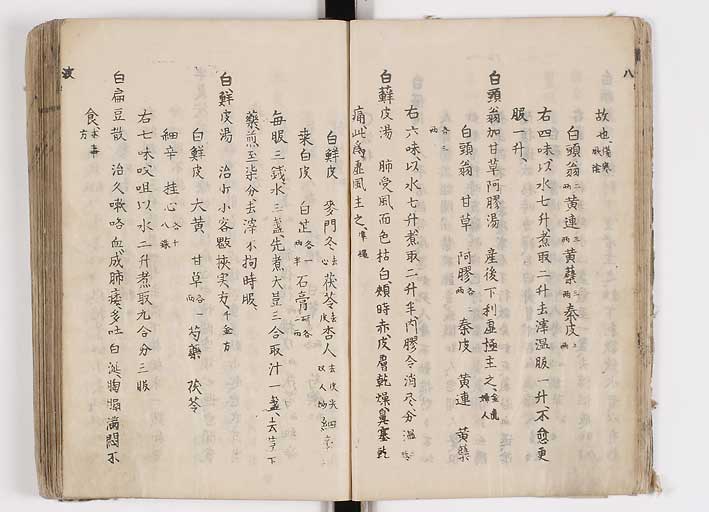 八
故也傷寒
白頭翁二兩黄連三兩黄蘗三兩秦皮二兩
右四味以水七升煮取二升去滓温服一升不愈更
服一升
白頭翁加甘草阿膠湯 産後下利虚極主之金匱婦人
白頭翁 甘草 阿膠各二兩 秦皮 黄連 黄蘗
各三兩
右六味以水七升煮取二升半内膠令消尽分温
白蘚皮湯 肺受風面色枯白頰時赤皮膚乾燥鼻塞乾
痛此為虚風主之
白鮮皮 麥門冬去心 茯苓去皮 杏人去皮尖 細辛
桒白皮 白芷各一兩半 石膏研各二兩
每服三錢水三盞先煮大豆三合取汁一盞去豆下
藥煎至柒分去滓不拘時服
白鮮皮湯 治小小客歐挾実方千金方
白鮮皮 大黄 甘草各一兩 芍藥 茯苓
細辛 桂心各十八銖
右七味㕮咀以水二升煮取九合分三服
白扁豆散 治久嗽咯血成肺痿多吐白涎胸膈滿悶不
食
波